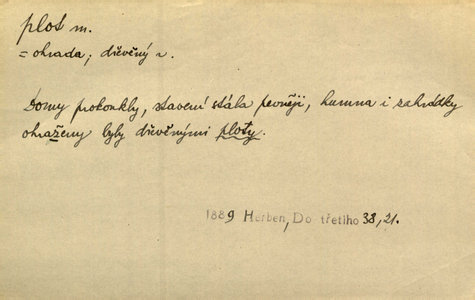 plot m.
= ohrada; dřevěný ~.
Domy prokoukly, stavení stála pevněji, humna i zahrádky
ohraženy byly dřevěnými ploty.
1889 Herben, Do třetího 38, 21.